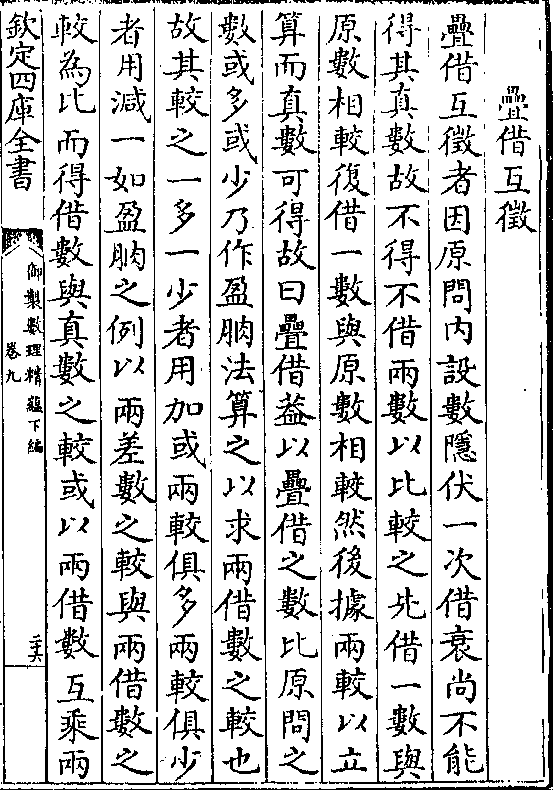 疊借互徵
疊借互徵者因原問內設數隱伏一次借衰尚不能
得其真數故不得不借兩數以比較之先借一數與
原數相較復借一數與原數相較然後據兩較以立
算而真數可得故曰疊借葢以疊借之數比原問之
數或多或少乃作盈朒法算之以求兩借數之較也
故其較之一多一少者用加或兩較俱多兩較俱少
者用減一如盈朒之例以兩差數之較與兩借數之
較為比而得借數與真數之較或以兩借數互乗兩
欽定四庫全書
御製數理精藴下編
卷九
二十六